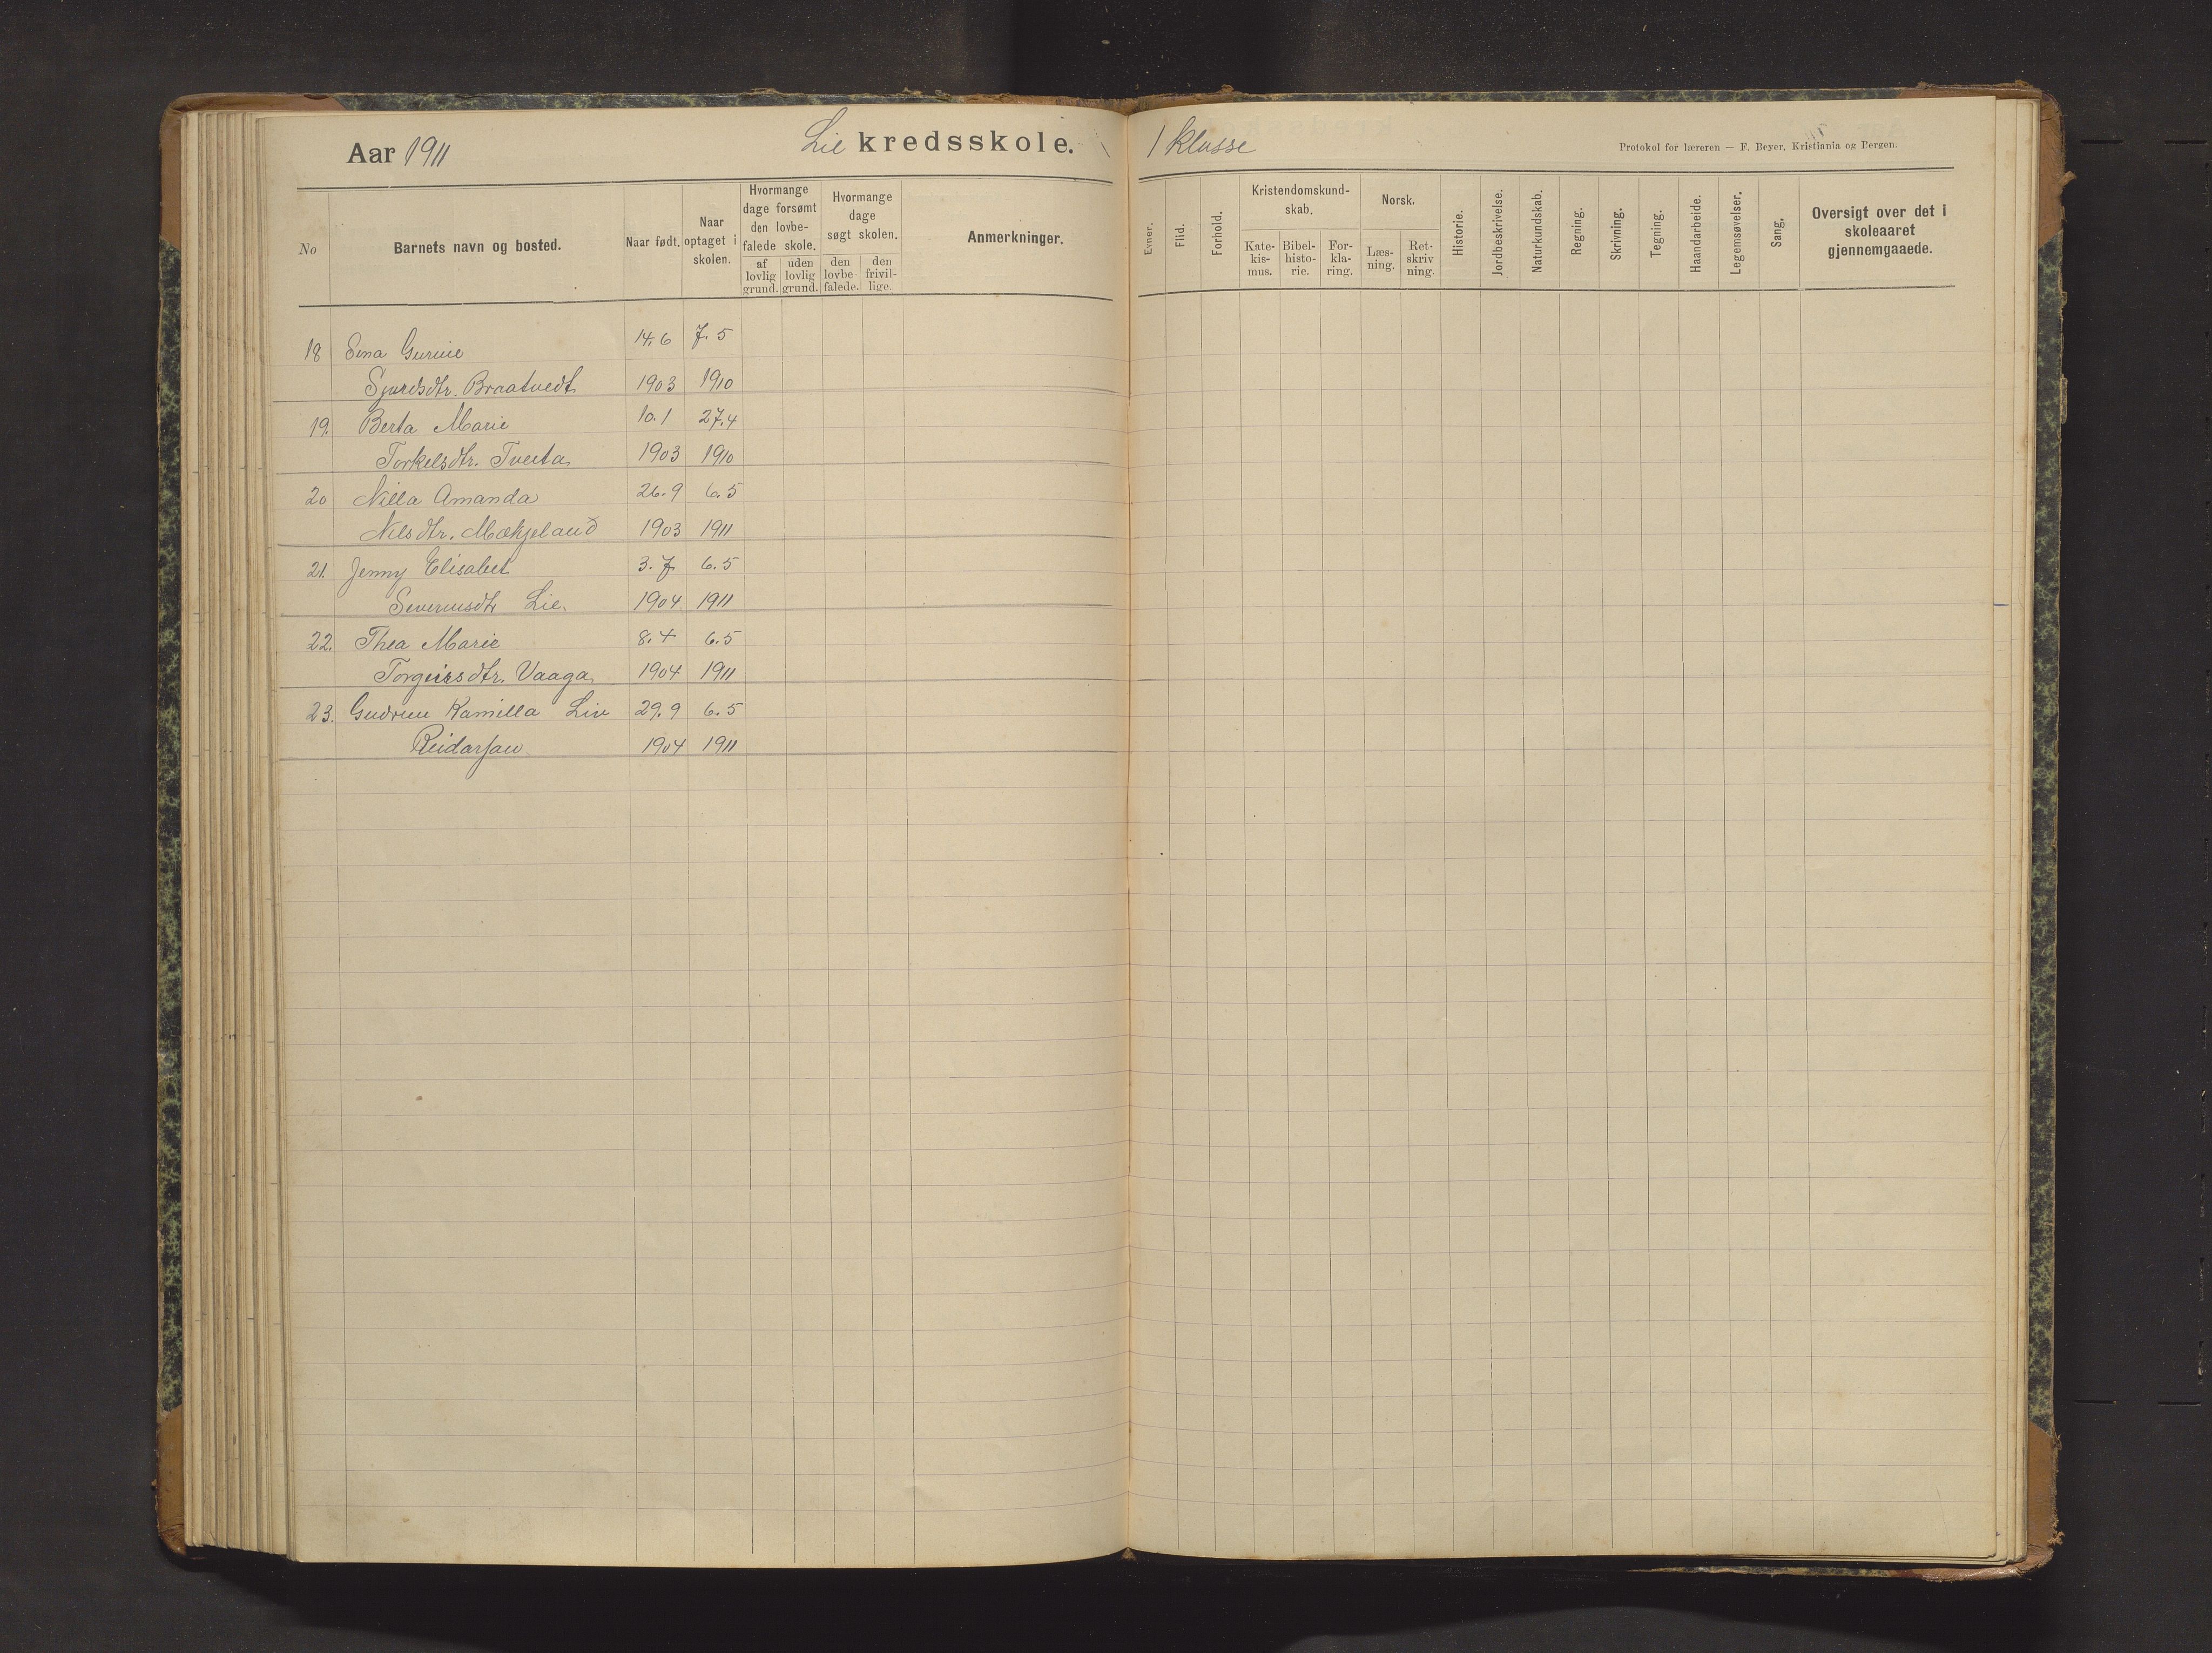 Aar 1911 Lie kredsskole. 1 klasse
Protokol for læreren — F. Beyer. Kristiania og Bergen.
No
Barnets navn og bosted.
Naar født.
Naar optaget i skolen.
Hvormange dage forsømt den lovbefalede skole.
af lovlig grund.
uden lovlig grund.
Hvormange dage søgt skolen.
den lovbefalede.
den frivillige.
Anmerkninger.
Evner.
Flid.
Forhold.
Kristendomskundskab.
Katekismus.
Bibelhistorie.
Forklaring.
Norsk.
Læsning.
Retskriv ning.
Historie.
Jordbeskrivelse.
Naturkundskab.
Regning.
Skrivning.
Tegning.
Haandarbeide.
Legemsøvelser.
Sang.
Oversigt over det i skoleaaret gjennemgaaede.
18 Sena Gurine 14.6 7.5
Sjursdtr. Braatvedt 1903 1910
19. Berta Marie 10.1 27.4
Torkelsdtr. Tveita 1903 1910
20 Nilla Amanda 26.9 6.5
Nilsdtr. Mækjeland 1903 1911
21. Jenny Elisabet 3.7 6.5
Severinsdtr Lie. 1904 1911
22. Thea Marie 8.4 6.5
Torgeirsdtr. Vaaga 1904 1911
23. Gudrun Kamilla Liv 29.9 6.5
Reidarsen 1904 1911